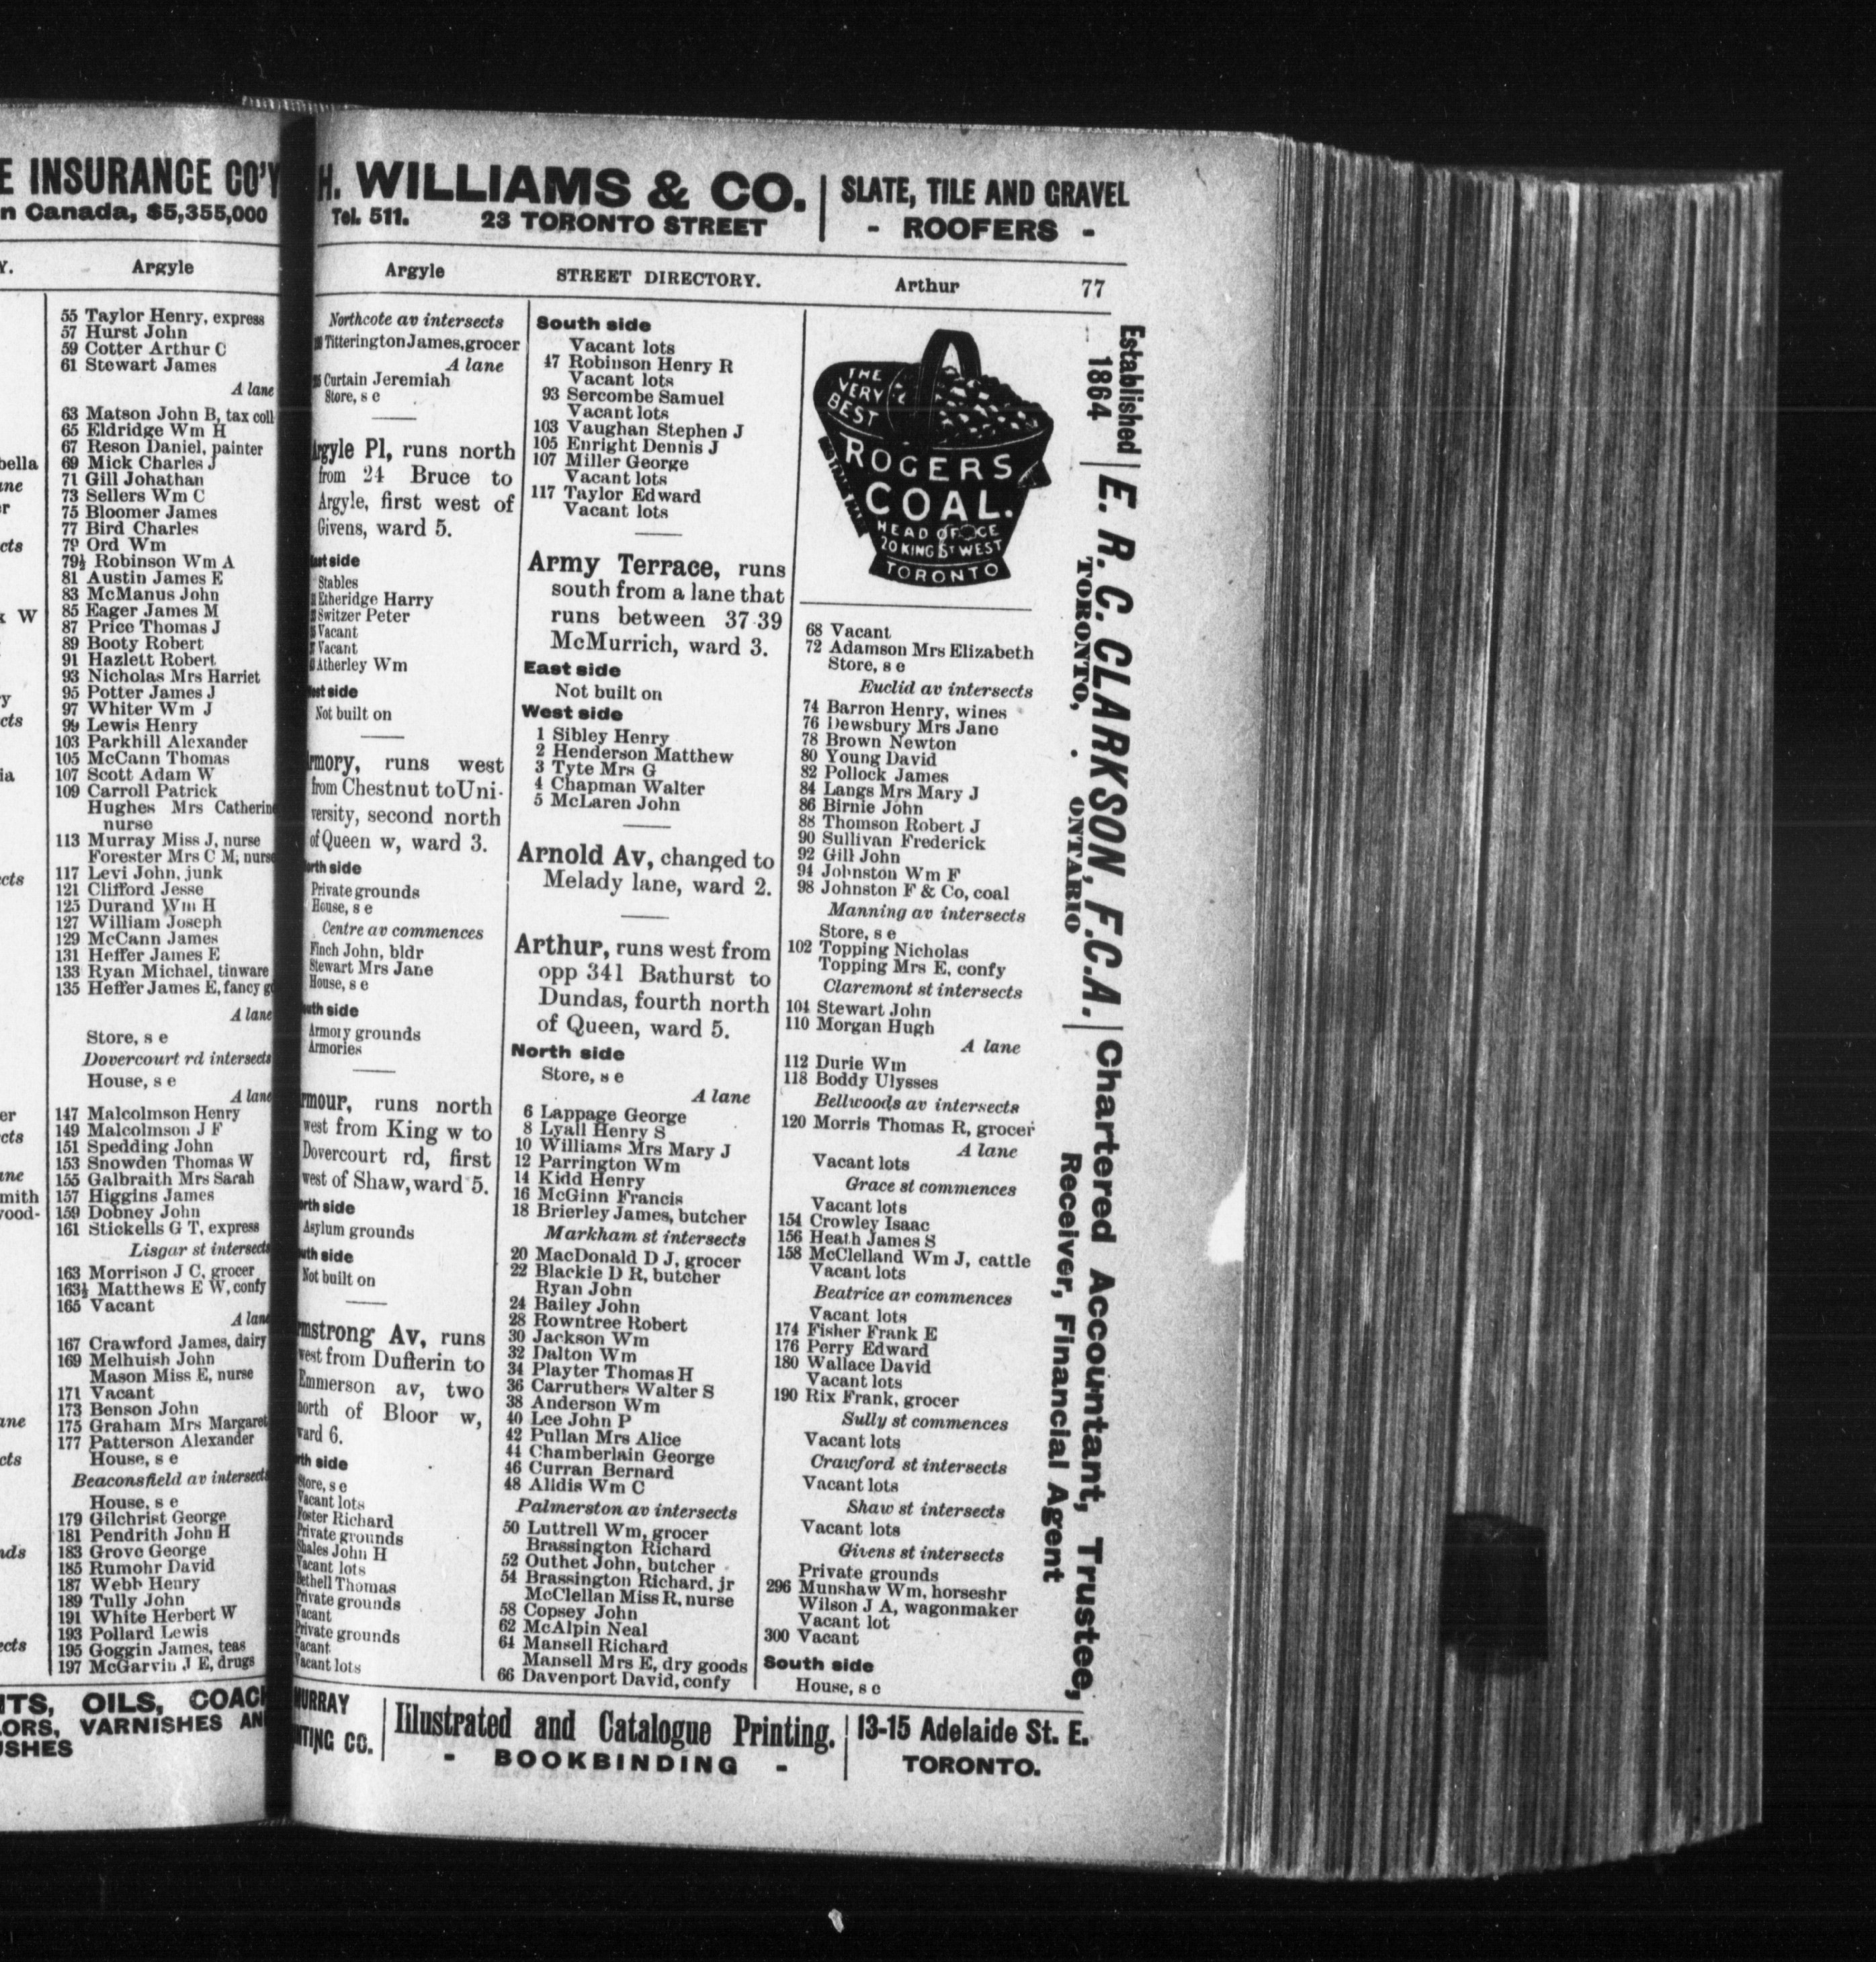 E INSURANCE CO'Y
n Canada, $5,355,000
Y.
Argyle
bella
ane
er
cts
x W
ry
cts
ia
ects
er
cts
ane
mith
wood-
ane
cts
nds
ects
55 Taylor Henry, express
57 Hurst John
59 Cotter Arthur C
61 Stewart James
A lane
63 Matson John B, tax coll
65 Eldridge Wm H
67 Reson Daniel, painter
69 Mick Charles J
71 Gill Johathan
73 Sellers Wm C
75 Bloomer James
77 Bird Charles
79 Ord Wm
79½ Robinson Wm A
81 Austin James E
83 McManus John
85 Eager James M
87 Price Thomas J
89 Booty Robert
91 Hazlett Robert
93 Nicholas Mrs Harriet
95 Potter James J
97 Whiter Wm J
99 Lewis Henry
103 Parkhill Alexander
105 McCann Thomas
107 Scott Adam W
109 Carroll Patrick
Hughes Mrs Catherine
nurse
113 Murray Miss J, nurse
Forester Mrs C M, nurse
117 Levi John, junk
121 Clifford Jesse
125 Durand Wm H
127 William Joseph
129 McCann James
131 Heffer James E
133 Ryan Michael, tinware
135 Heffer James E, fancy g
A lane
Store, s e
Dovercourt rd intersects
House, s e
A lane
147 Malcolmson Henry
149 Malcolmson J F
151 Spedding John
153 Snowden Thomas W
155 Galbraith Mrs Sarah
157 Higgins James
159 Dobney John
161 Stickells G T, express
Lisgar st intersects
163 Morrison J C, grocer
163½ Matthews E W, confy
165 Vacant
A lane
167 Crawford James, dairy
169 Melhuish John
Mason Miss E, nurse
171 Vacant
173 Benson John
175 Graham Mrs Margaret
177 Patterson Alexander
House, s e
Beaconsfield av intersects
House, s e
179 Gilchrist George
181 Pendrith John H
183 Grove George
185 Rumohr David
187 Webb Henry
189 Tully John
191 White Herbert W
193 Pollard Lewis
195 Goggin James, teas
197 McGarvin J E, drugs
NTS, OILS, COACH
LORS, VARNISHES AN
USHES
H. WILLIAMS & CO.
Tel. 511. 23 TORONTO STREET
SLATE, TILE AND GRAVEL
- ROOFERS -
Argyle
STREET DIRECTORY.
Arthur
77
Northcote av intersects
Titterington James, grocer
A lane
Curtain Jeremiah
Store, s e
Argyle Pl, runs north
from 24 Bruce to
Argyle, first west of
Givens, ward 5.
East side
Stables
Etheridge Harry
Switzer Peter
Vacant
Vacant
Atherley Wm
West side
Not built on
Armory, runs west
from Chestnut to Uni-
versity, second north
of Queen w, ward 3.
North side
Private grounds
House, s e
Centre av commences
Finch John, bldr
Stewart Mrs Jane
House, s e
South side
Armory grounds
Armories
Armour, runs north
west from King w to
Dovercourt rd, first
west of Shaw, ward 5.
North side
Asylum grounds
South side
Not built on
Armstrong Av, runs
west from Dufferin to
Emmerson av, two
north of Bloor w,
ward 6.
North side
Store, s e
Vacant lots
Foster Richard
Private grounds
Shales John H
Vacant lots
Bethell Thomas
Private grounds
Vacant
Private grounds
Vacant
Vacant lots
South side
Vacant lots
47 Robinson Henry R
Vacant lots
93 Sercombe Samuel
Vacant lots
103 Vaughan Stephen J
105 Enright Dennis J
107 Miller George
Vacant lots
117 Taylor Edward
Vacant lots
Army Terrace, runs
south from a lane that
runs between 37-39
McMurrich, ward 3.
East side
Not built on
West side
1 Sibley Henry
2 Henderson Matthew
3 Tyte Mrs G
4 Chapman Walter
5 McLaren John
Arnold Av, changed to
Melady lane, ward 2.
Arthur, runs west from
opp 341 Bathurst to
Dundas, fourth north
of Queen, ward 5.
North side
Store, s e
A lane
6 Lappage George
8 Lyall Henry S
10 Williams Mrs Mary J
12 Parrington Wm
14 Kidd Henry
16 McGinn Francis
18 Brierley James, butcher
Markham st intersects
20 MacDonald D J, grocer
22 Blackie D R, butcher
Ryan John
24 Bailey John
28 Rowntree Robert
30 Jackson Wm
32 Dalton Wm
34 Playter Thomas H
36 Carruthers Walter S
38 Anderson Wm
40 Lee John P
42 Pullan Mrs Alice
44 Chamberlain George
46 Curran Bernard
48 Alidis Wm C
Palmerston av intersects
50 Luttrell Wm, grocer
Brassington Richard
52 Outhet John, butcher
54 Brassington Richard, jr
McClellan Miss R, nurse
58 Copsey John
62 McAlpin Neal
64 Mansell Richard
Mansell Mrs E, dry goods
66 Davenport David, confy
THE
VERY
BEST
ROGERS
COAL.
HEAD OFFICE
20 KING ST WEST
TORONTO
68 Vacant
72 Adamson Mrs Elizabeth
Store, s e
Euclid av intersects
74 Barron Henry, wines
76 Dewsbury Mrs Jane
78 Brown Newton
80 Young David
82 Pollock James
84 Langs Mrs Mary J
86 Birnie John
88 Thomson Robert J
90 Sullivan Frederick
92 Gill John
94 Johnston Wm F
98 Johnston F & Co, coal
Manning av intersects
Store, s e
102 Topping Nicholas
Topping Mrs E, confy
Claremont st intersects
104 Stewart John
110 Morgan Hugh
A lane
112 Durie Wm
118 Boddy Ulysses
Bellwoods av intersects
120 Morris Thomas R, grocer
A lane
Vacant lots
Grace st commences
Vacant lots
154 Crowley Isaac
156 Heath James S
158 McClelland Wm J, cattle
Vacant lots
Beatrice av commences
Vacant lots
174 Fisher Frank E
176 Perry Edward
180 Wallace David
Vacant lots
190 Rix Frank, grocer
Sully st commences
Vacant lots
Crawford st intersects
Vacant lots
Shaw st intersects
Vacant lots
Givens st intersects
Private grounds
296 Munshaw Wm, horseshr
Wilson J A, wagonmaker
Vacant lot
300 Vacant
South side
House, s e
Established
1864
E. R. C. CLARKSON, F.C.A.
TORONTO, . ONTARIO
Chartered Accountant, Trustee,
Receiver, Financial Agent
MURRAY
NTING CO.
Illustrated and Catalogue Printing.
- BOOKBINDING -
13-15 Adelaide St. E.
TORONTO.